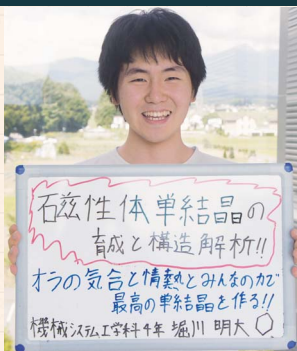 磁性体単結晶の
育成と構造解析!!
オラの気合と情熱とみんなの力で
最高の単結晶を作る!!
機械システム工学科4年 堀川 明大